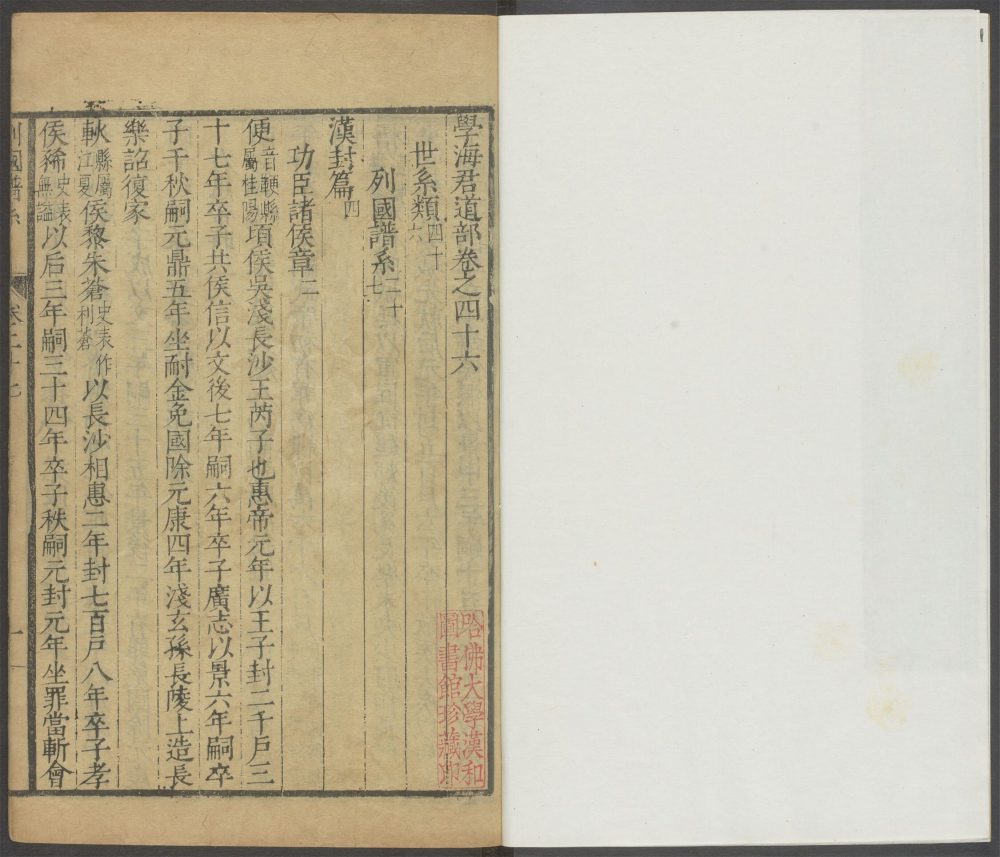 學海君道部卷之四十六
世系類四十六
列國譜系二十七
漢封篇四
功臣諸侯章二
便音鞭縣屬桂陽頃侯吳淺長沙王芮子也惠帝元年以王子封二千戶三
十七年卒子共侯信以文後七年嗣六年卒子廣志以景六年嗣卒
子千秋嗣元鼎五年坐耐金免國除元康四年淺玄孫長陵上造長
樂詔復家
軑縣屬江夏侯黎朱蒼史表作利蒼以長沙相惠二年封七百戶八年卒子孝
侯豨史表無謚以后三年嗣三十四年卒子秩嗣元封元年坐罪當斬會
列國譜系
卷二十七
一
哈佛大學漢和
圖書館珍藏印